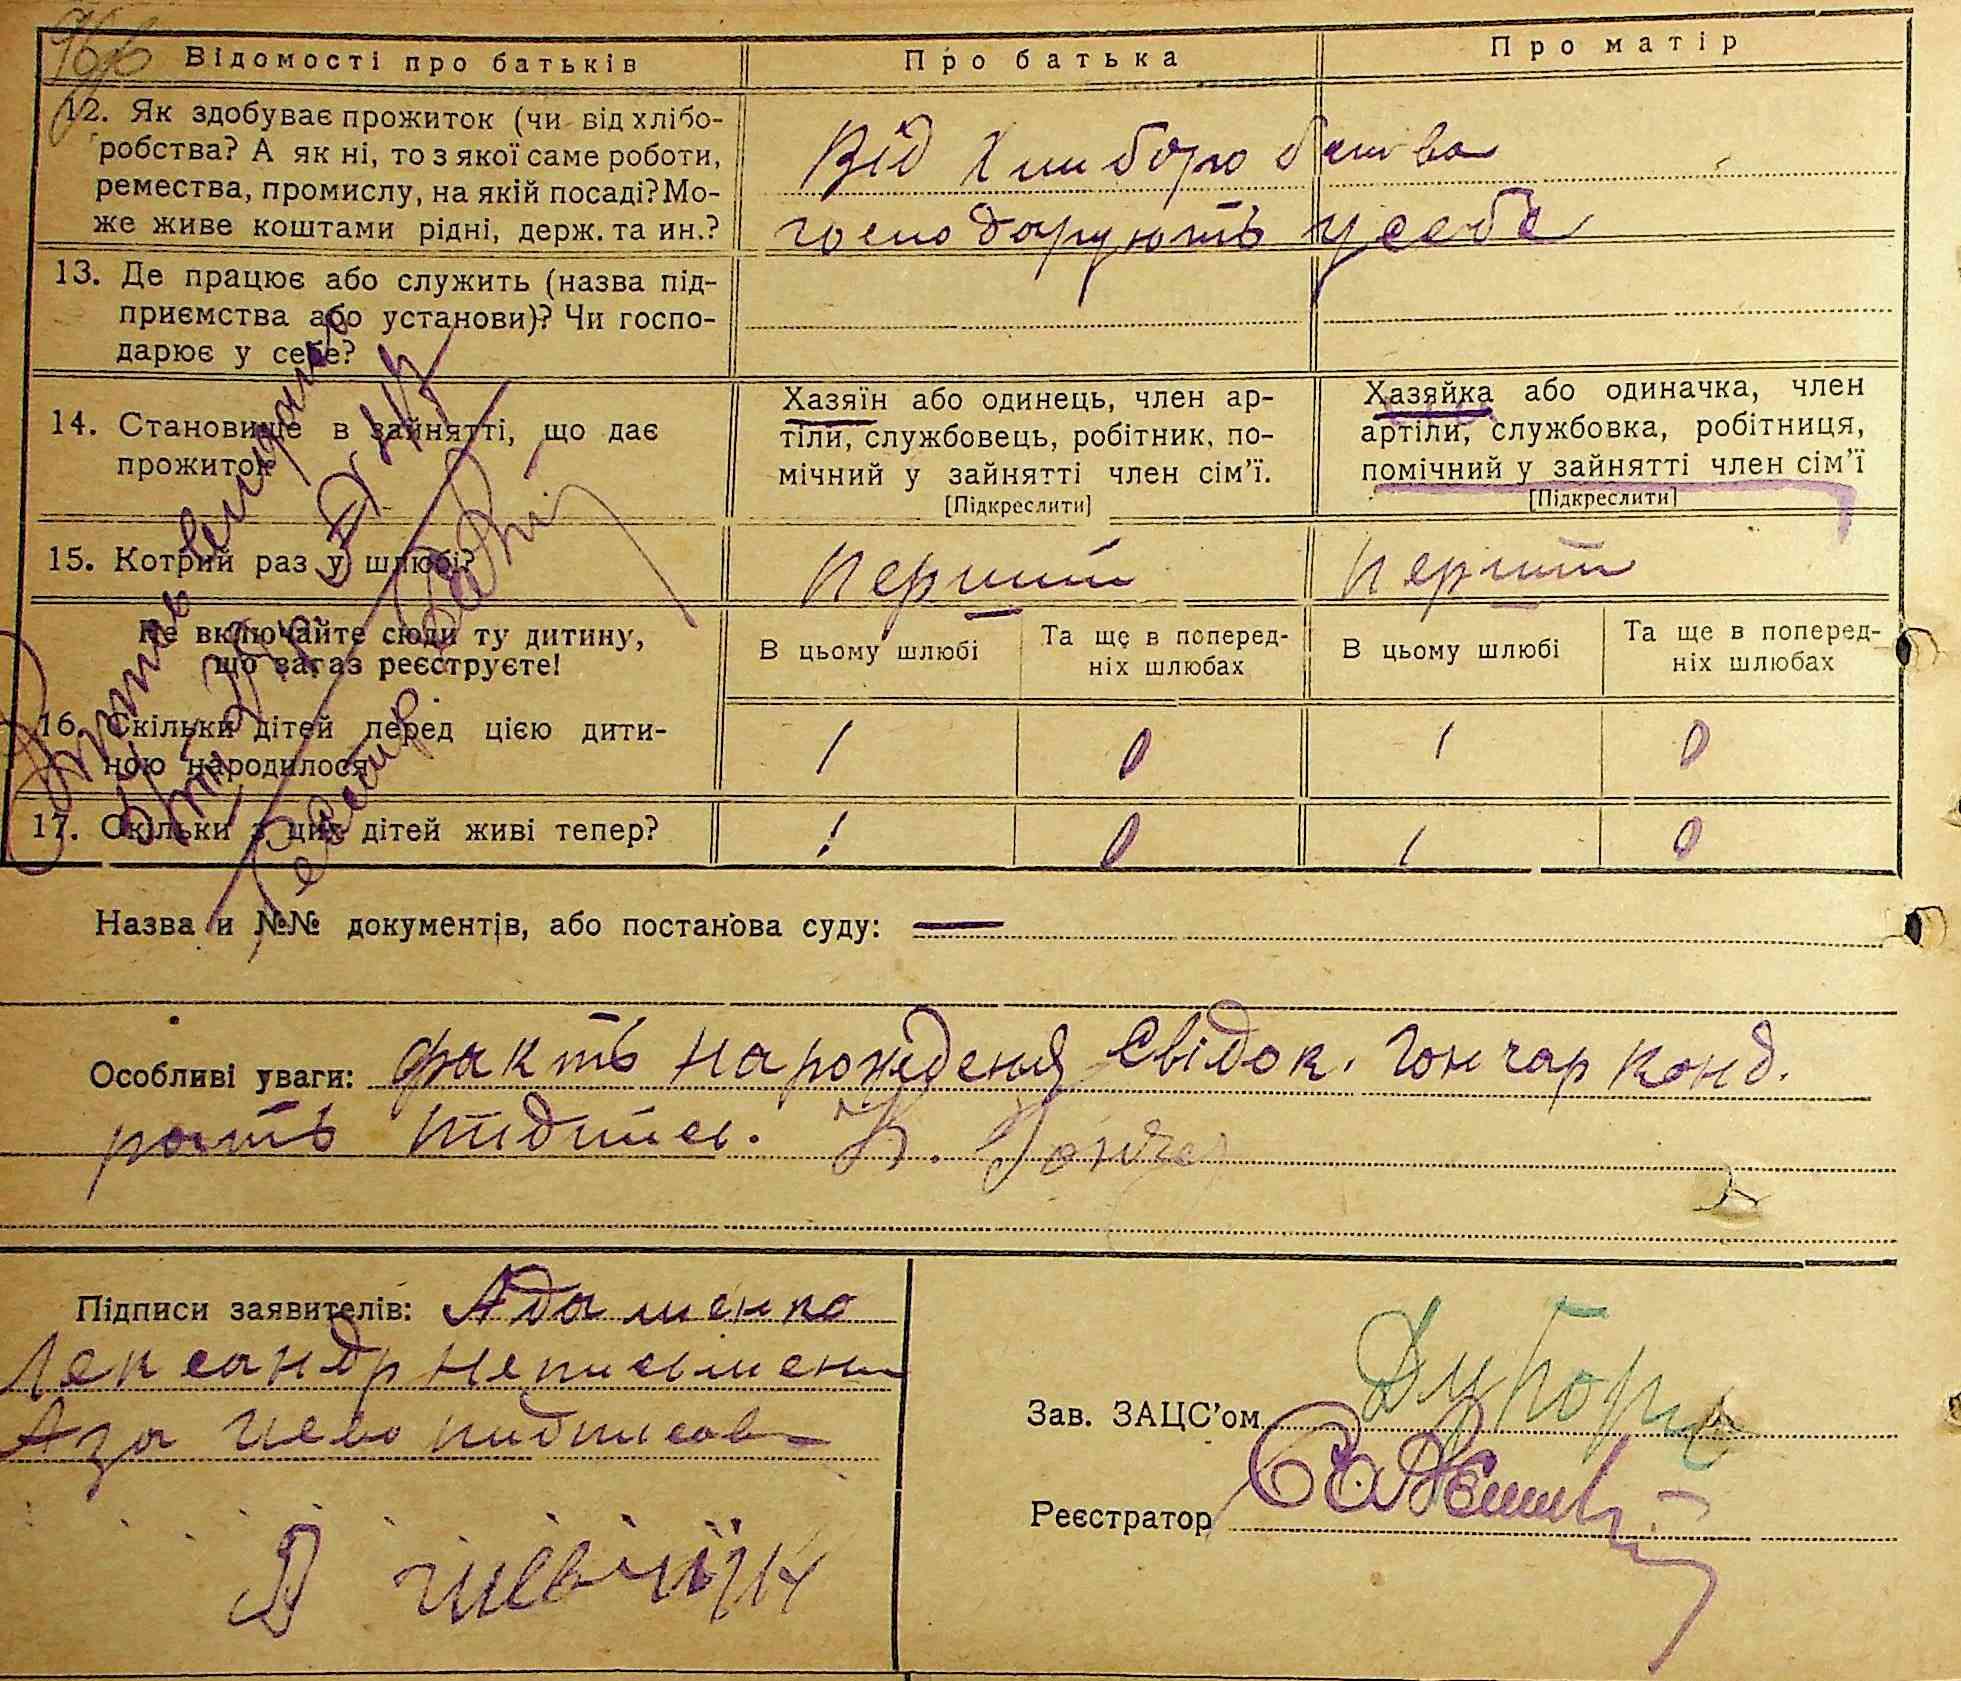 Відомості про батьків
Про батька
Про матір
12. Як здобуває прожиток (чи від хлібо-
робства? А як ні, то з якої саме роботи,
ремества, промислу, на якій посаді? Мо-
же живе коштами рідні, держ. та ин.?
Від Хлиборобства
господарують у себе
13. Де працює або служить (назва під-
приємства або установи)? Чи госпо-
дарює у себе?
14. Становище в зайнятті, що дає
прожиток
Хазяїн або одинець, член ар-
тіли, службовець, робітник, по-
мічний у зайнятті член сім'ї.
[Підкреслити]
Хазяйка або одиначка, член
артіли, службовка, робітниця,
помічний у зайнятті член сім'ї
[Підкреслити]
15. Котрий раз у шлюбі?
Перший
Перший
Не включайте сюди ту дитину,
що зараз реєструєте!
В цьому шлюбі
Та ще в поперед-
ніх шлюбах
В цьому шлюбі
Та ще в поперед-
ніх шлюбах
16. Скільки дітей перед цією дити-
ною народилося
1 0 1 0
17. Скільки з цих дітей живі тепер?
1 0 1 0
Назва и №№ документів, або постанова суду: —
Особливі уваги: фактъ нарожденя Свідок. Гончар Конд.
ратъ підпис. К. Гончар
Підписи заявителів: Адаменко
Лександр неписьмен
А за него підписав
Зав. ЗАЦС'ом
Реєстратор